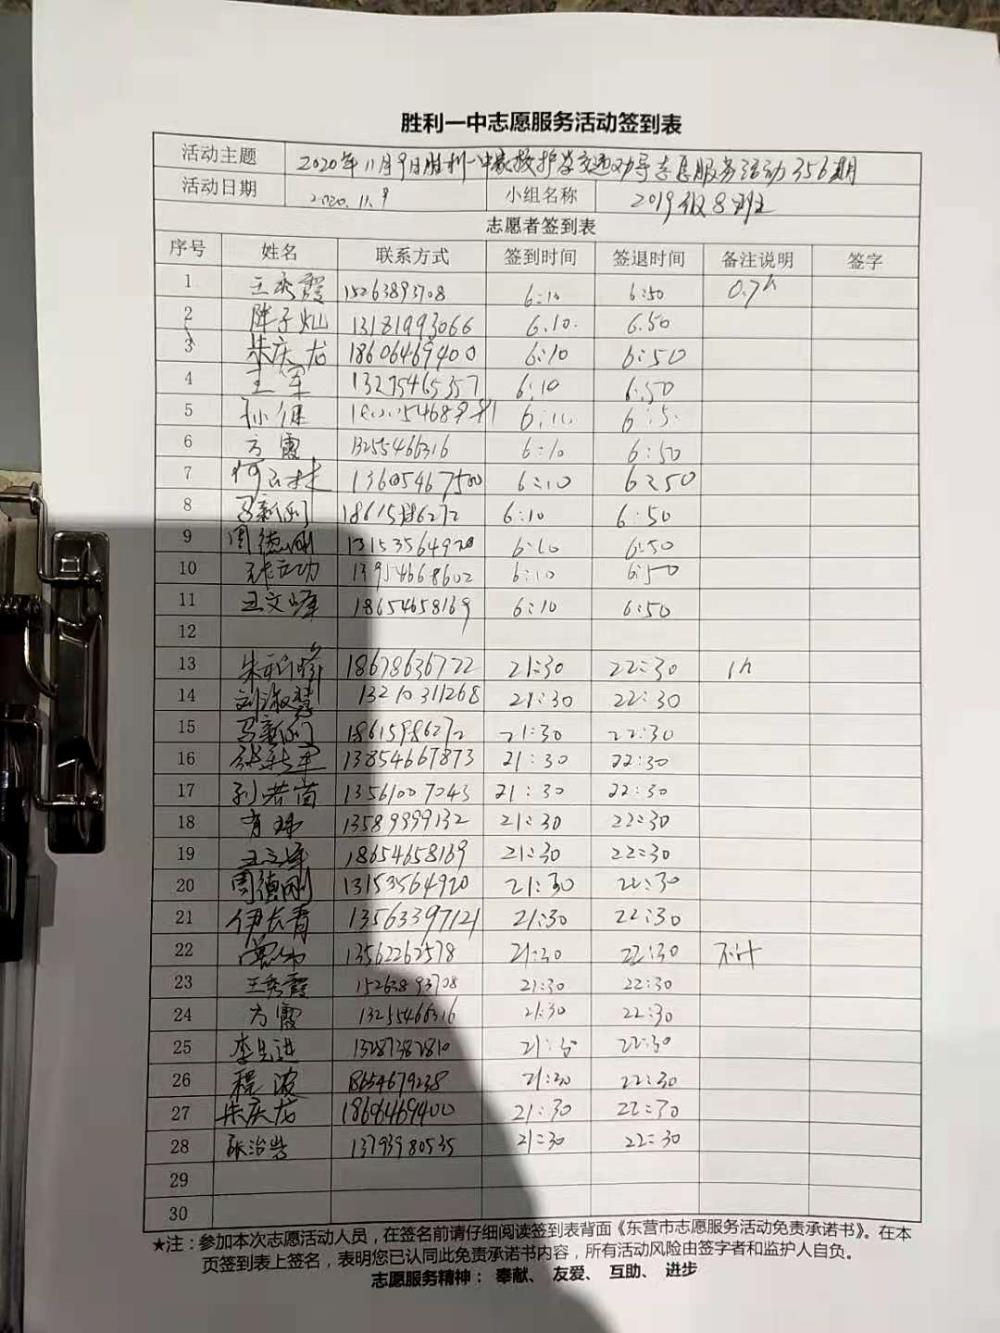 胜利一中志愿服务活动签到表
活动主题 2020年11月9日胜利一中家校护学交通劝导志愿服务活动356期
活动日期 2020.11.9 小组名称 2019级8班
志愿者签到表
序号 姓名 联系方式 签到时间 签退时间 备注说明 签字
1 王秀霞 15263893708 6:10 6:50 0.7h
2 陈子灿 13181993066 6.10. 6.50
3 朱庆龙 18606469400 6:10 6:50
4 王军 13275465357 6:10 6:50
5 孙健 6:
6 方霞 13255466316 6:10 6:50
7 何玉林 13605467500 6:10 6:50
8 马新利 6:10 6:50
9 周德刚 13153564920 6:10 6:50
10 张立功 13954668602 6:10 6:50
11 王文峰 18654658169 6:10 6:50
12
13 朱 18678636722 21:30 22:30 1h
14 刘淑慧 13210311268 21:30 22:30
15 马新利 18615986272 21:30 22:30
16 张 军 13854667873 21:30 22:30
17 孙若茵 13561007043 21:30 22:30
18 13589999132 21:30 22:30
19 王文峰 18654658169 21:30 22:30
20 周德刚 13153564920 21:30 22:30
21 伊长青 13563397121 21:30 22:30
22 13562262578 21:30 22:30 不计
23 王秀霞 15263893708 21:30 22:30
24 方霞 13255466316 21:30 22:30
25 李 进 13287382810 22:30
26 程波 18654679238 21:30 22:30
27 朱庆龙 18606469400 21:30 22:30
28 张治岩 13793980535 21:30 22:30
29
30
★注：参加本次志愿活动人员，在签名前请仔细阅读签到表背面《东营市志愿服务活动免责承诺书》。在本
页签到表上签名，表明您已认同此免责承诺书内容，所有活动风险由签字者和监护人自负。
志愿服务精神： 奉献、 友爱、 互助、 进步